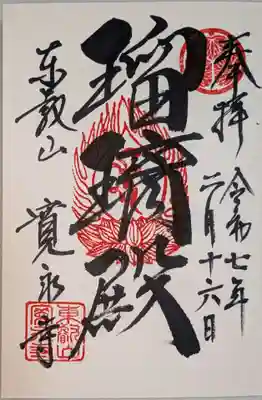 奉拝
令和七年
二月十六日
瑠璃殿
東叡山
寛永寺
東叡山
寛永寺